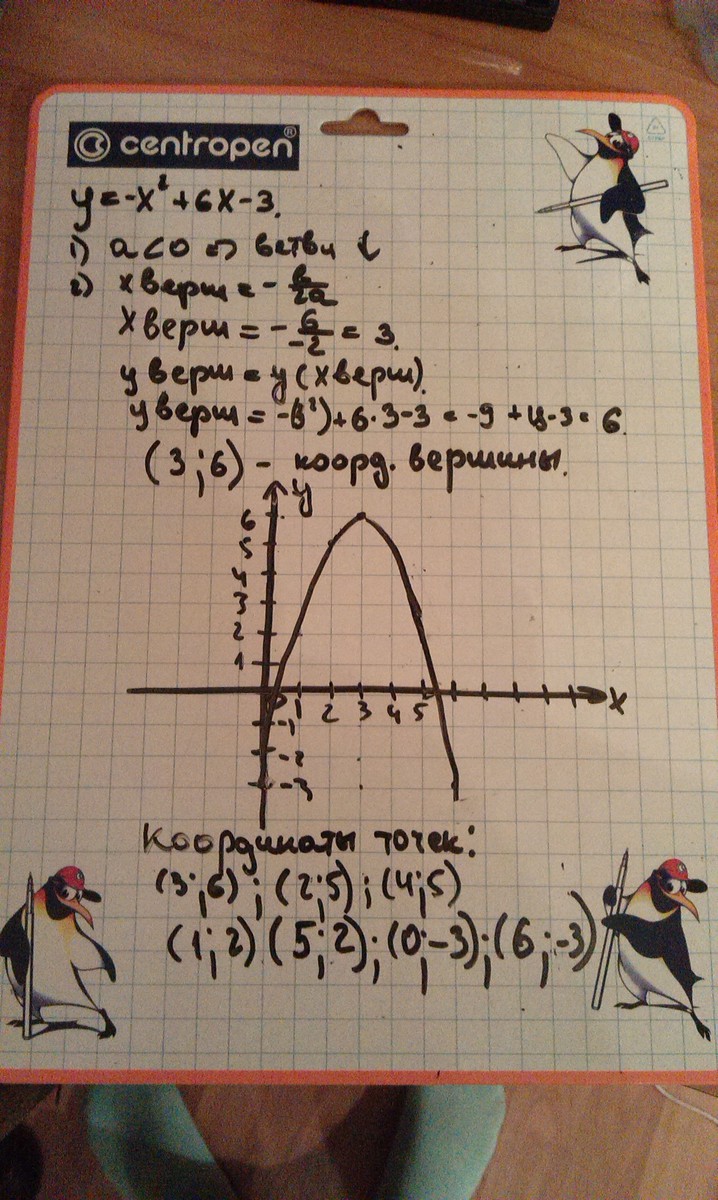 centropen®
y = -x² + 6x - 3.
1) a < 0 => ветви ↓
2) x верш = - в/2a
x верш = - 6/-2 = 3.
y верш = y (x верш).
y верш = -(3²) + 6·3 - 3 = -9 + 18 - 3 = 6.
(3 ; 6) - коорд. вершины.
y
6
5
4
3
2
1
0 1 2 3 4 5 x
-1
-2
-3
Координаты точек:
(3 ; 6) ; (2 ; 5) ; (4 ; 5)
(1 ; 2) (5 ; 2) ; (0 ; -3) ; (6 ; -3)